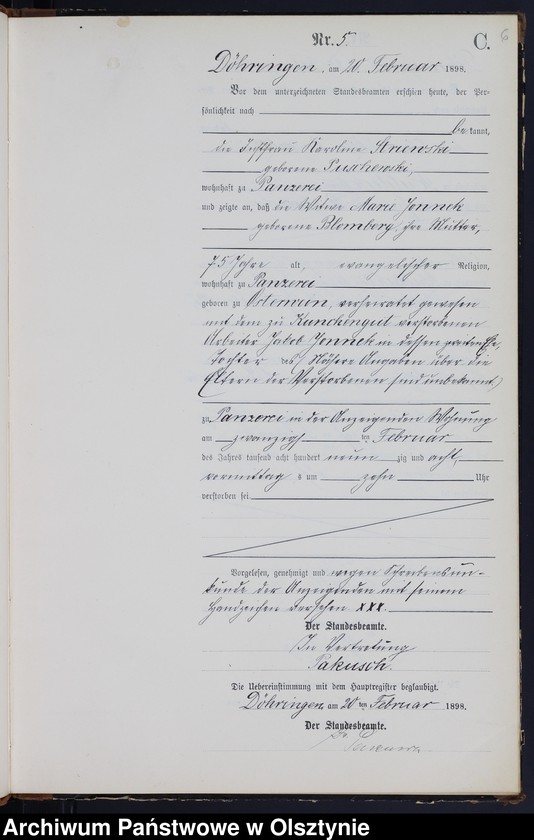 Nr. 5.
C.
6
Döhringen, am 20. Februar 1898.
Vor dem unterzeichneten Standesbeamten erschien heute, der Per-
sönlichkeit nach
be kannt,
die Karoline Striewski
geborene Puschewski,
wohnhaft zu Panzerei
und zeigte an, daß die Witwe Marie Jonnek
geborene Blomberg, ihre Mutter,
75 Jahre alt, evangelischer Religion,
wohnhaft zu Panzerei
geboren zu verheiratet gewesen
mit dem zu Kunchengut verstorbenen
Arbeiter Jakob Jonnek in dessen zweiten Ehe,
Tochter des (Nähere Angaben über die
Eltern der Verstorbenen sind unbekannt)
zu Panzerei in der Anzeigenden Wohnung
am zwanzigsten Februar
des Jahres tausend acht hundert neun zig und acht,
vormittag s um zehn Uhr
verstorben sei
Vorgelesen, genehmigt und wegen Schreibensun-
kunde der Anzeigenden mit seinem
Handzeichen versehen xxx.
Der Standesbeamte.
In Vertretung
Pakusch.
Die Uebereinstimmung mit dem Hauptregister beglaubigt.
Döhringen, am 20ten Februar 1898.
Der Standesbeamte.
Archiwum Państwowe w Olsztynie